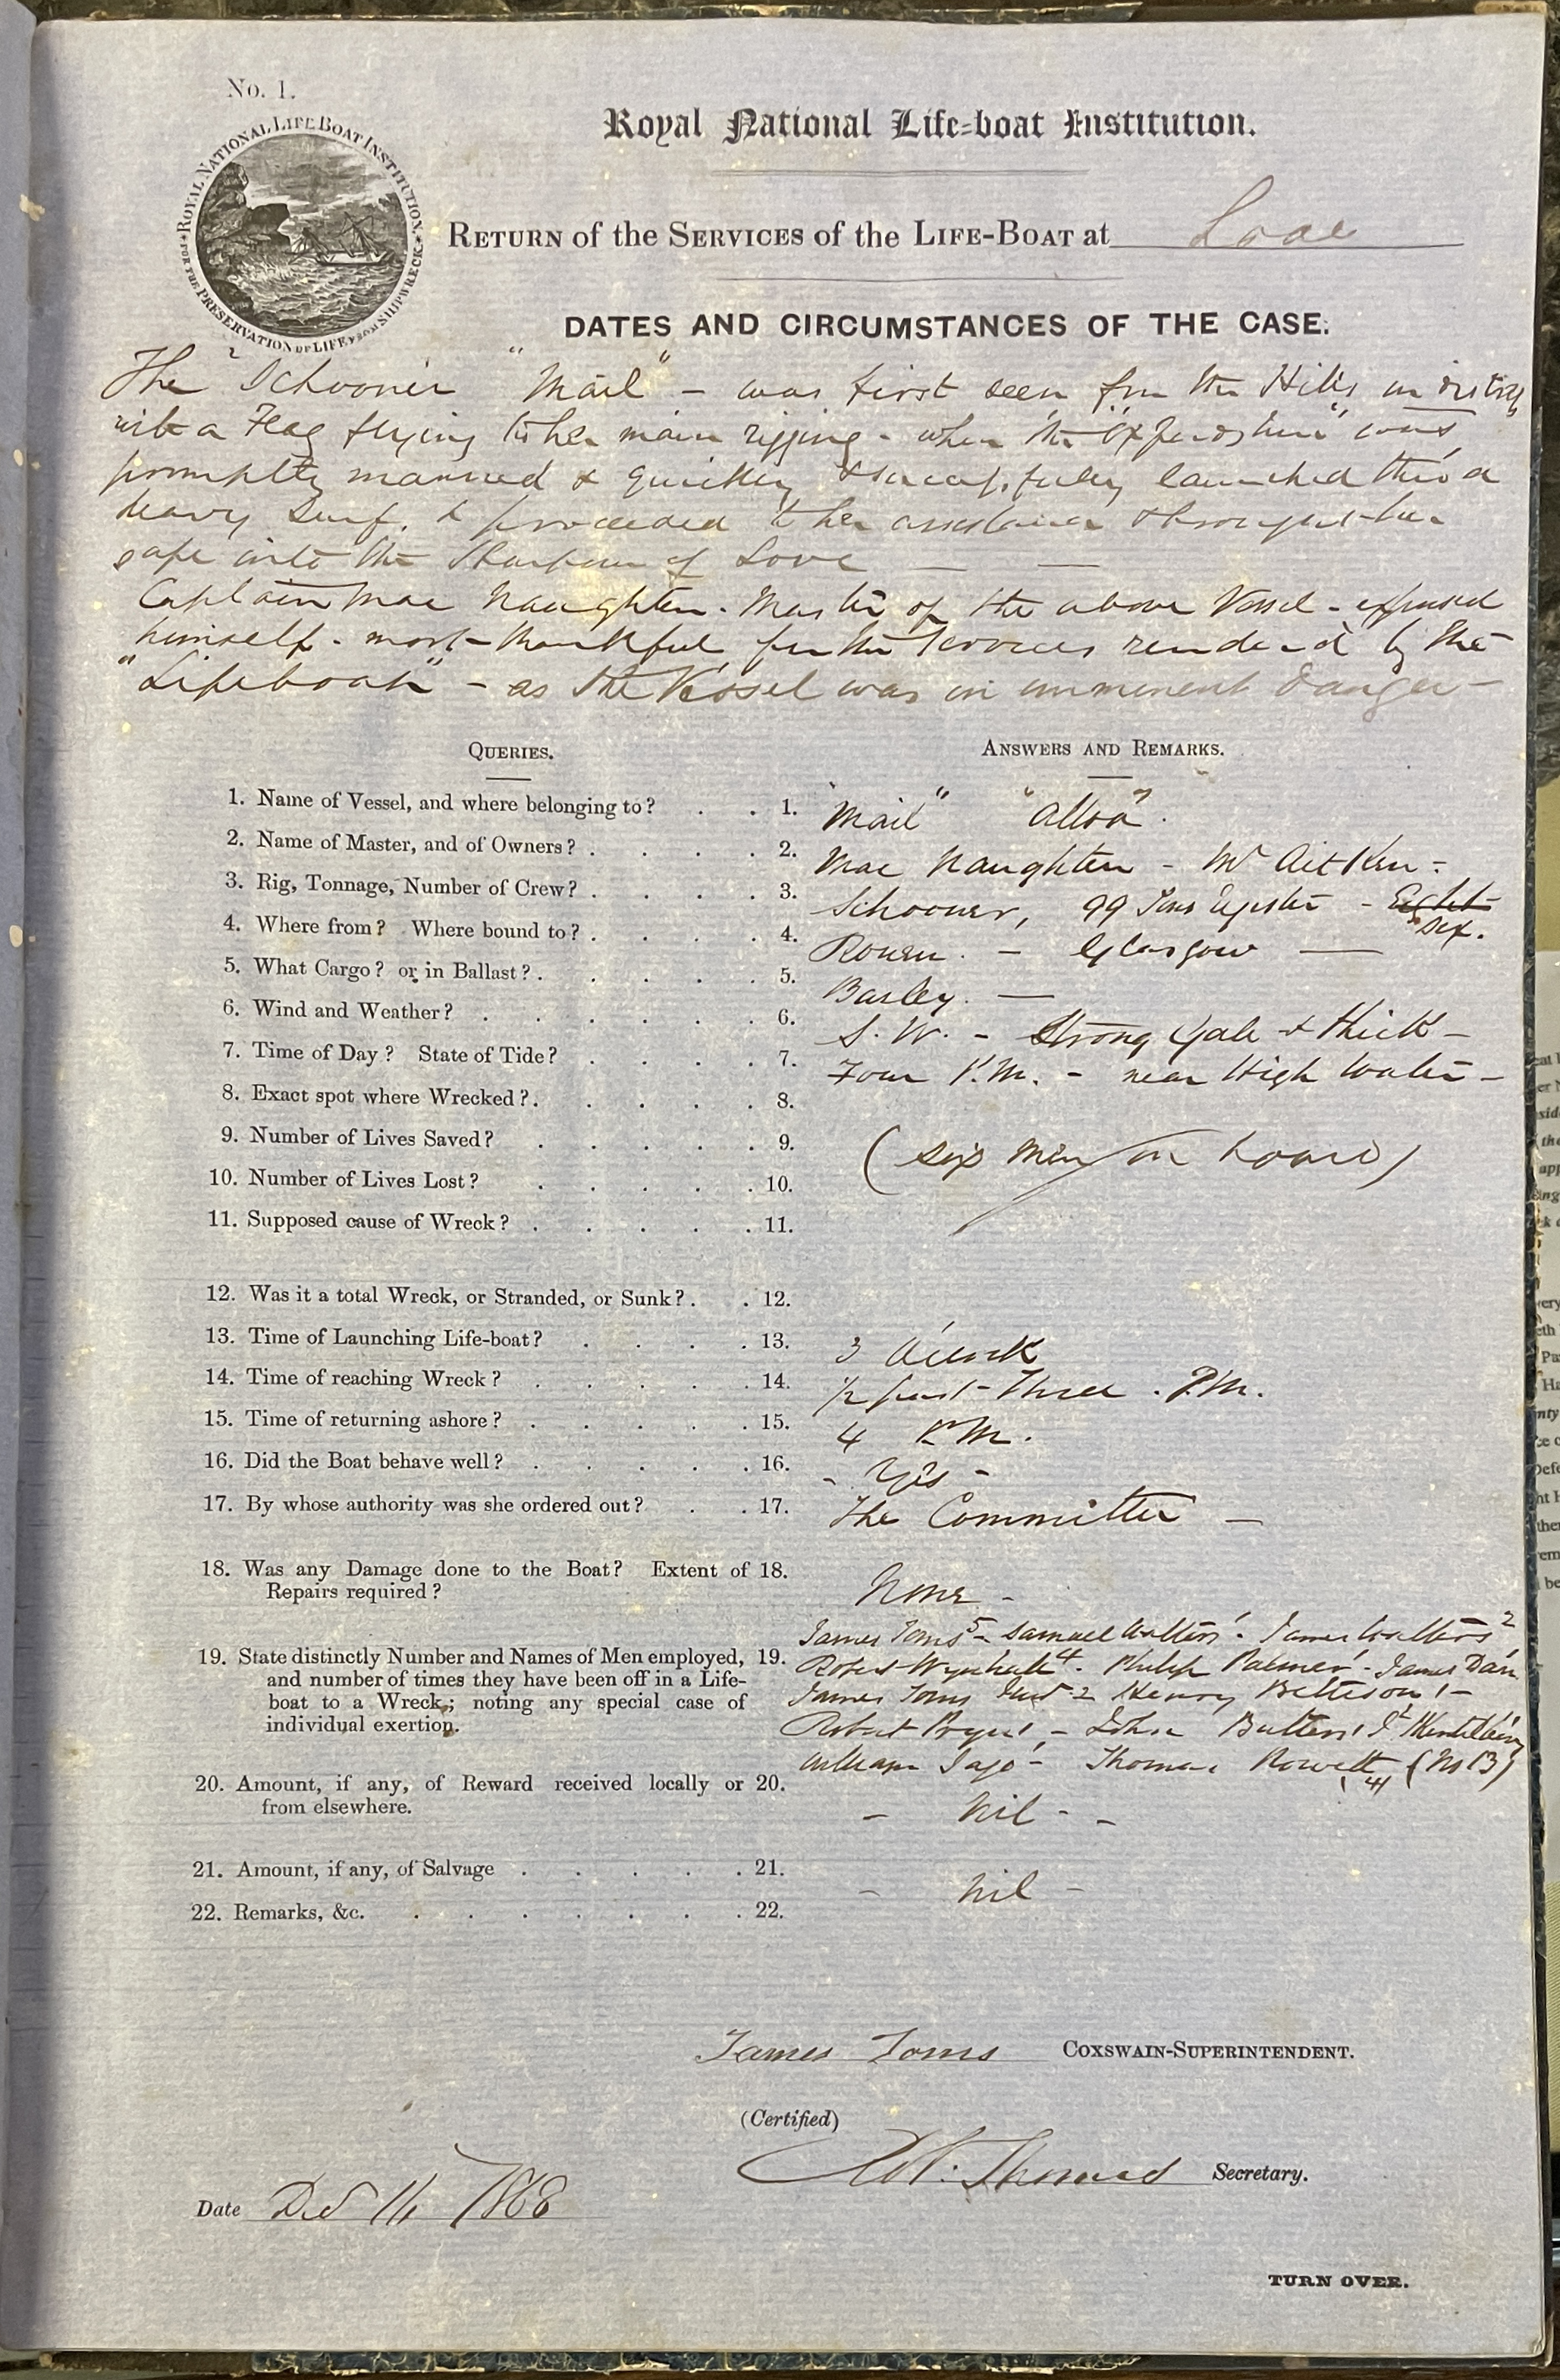 No. 1.
ROYAL NATIONAL LIFE BOAT INSTITUTION.
FOR THE PRESERVATION OF LIFE FROM SHIPWRECK
Royal National Life-boat Institution.
RETURN of the SERVICES of the LIFE-BOAT at Looe
DATES AND CIRCUMSTANCES OF THE CASE.
The Schooner "Mail" - was first seen from the Hills in distress
with a Flag flying in her main rigging - when the "Oxfordshire" was
promptly manned & quickly & successfully launched thro' a
heavy surf, & proceeded to her assistance & brought her
safe into the Harbour of Looe —
Captain Mac Naughten. Master of the above Vessel - expressed
himself - most thankful for the Services rendered by the
"Lifeboat" - as the Vessel was in imminent danger -
QUERIES.
ANSWERS AND REMARKS.
1. Name of Vessel, and where belonging to? 1. "Mail" "Alloa".
2. Name of Master, and of Owners? 2. Mac Naughten - Mr Aitken -
3. Rig, Tonnage, Number of Crew? 3. Schooner, 99 Tons Register - Eight
Six.
4. Where from? Where bound to? 4. Rouen - Glasgow —
5. What Cargo? or in Ballast? 5. Barley. —
6. Wind and Weather? 6. S. W. - Strong Gale & thick -
7. Time of Day? State of Tide? 7. Four P.M. - near High Water -
8. Exact spot where Wrecked? 8.
9. Number of Lives Saved? 9. (Six Men on board)
10. Number of Lives Lost? 10.
11. Supposed cause of Wreck? 11.
12. Was it a total Wreck, or Stranded, or Sunk? 12.
13. Time of Launching Life-boat? 13. 3 O'clock
14. Time of reaching Wreck? 14. ½ past Three. P.M.
15. Time of returning ashore? 15. 4 P.M.
16. Did the Boat behave well? 16. - Yes -
17. By whose authority was she ordered out? 17. The Committee —
18. Was any Damage done to the Boat? Extent of 18. None -
Repairs required?
James Toms 5 - Samuel Walters 1 - James Walters 2
19. State distinctly Number and Names of Men employed, 19. Robert 4 - Philip Palmer 1 - James Dan
and number of times they have been off in a Life-
James Toms 2 Henry Bettison 1 -
boat to a Wreck; noting any special case of
individual exertion.
Robert Pryer 1 - John Butters 1
William - Thomas Rowett (No 13)
4
20. Amount, if any, of Reward received locally or 20. - Nil -
from elsewhere.
21. Amount, if any, of Salvage 21. - Nil -
22. Remarks, &c. 22.
James Toms COXSWAIN-SUPERINTENDENT.
(Certified)
Thomas Secretary.
Date Decr 11 1868
TURN OVER.